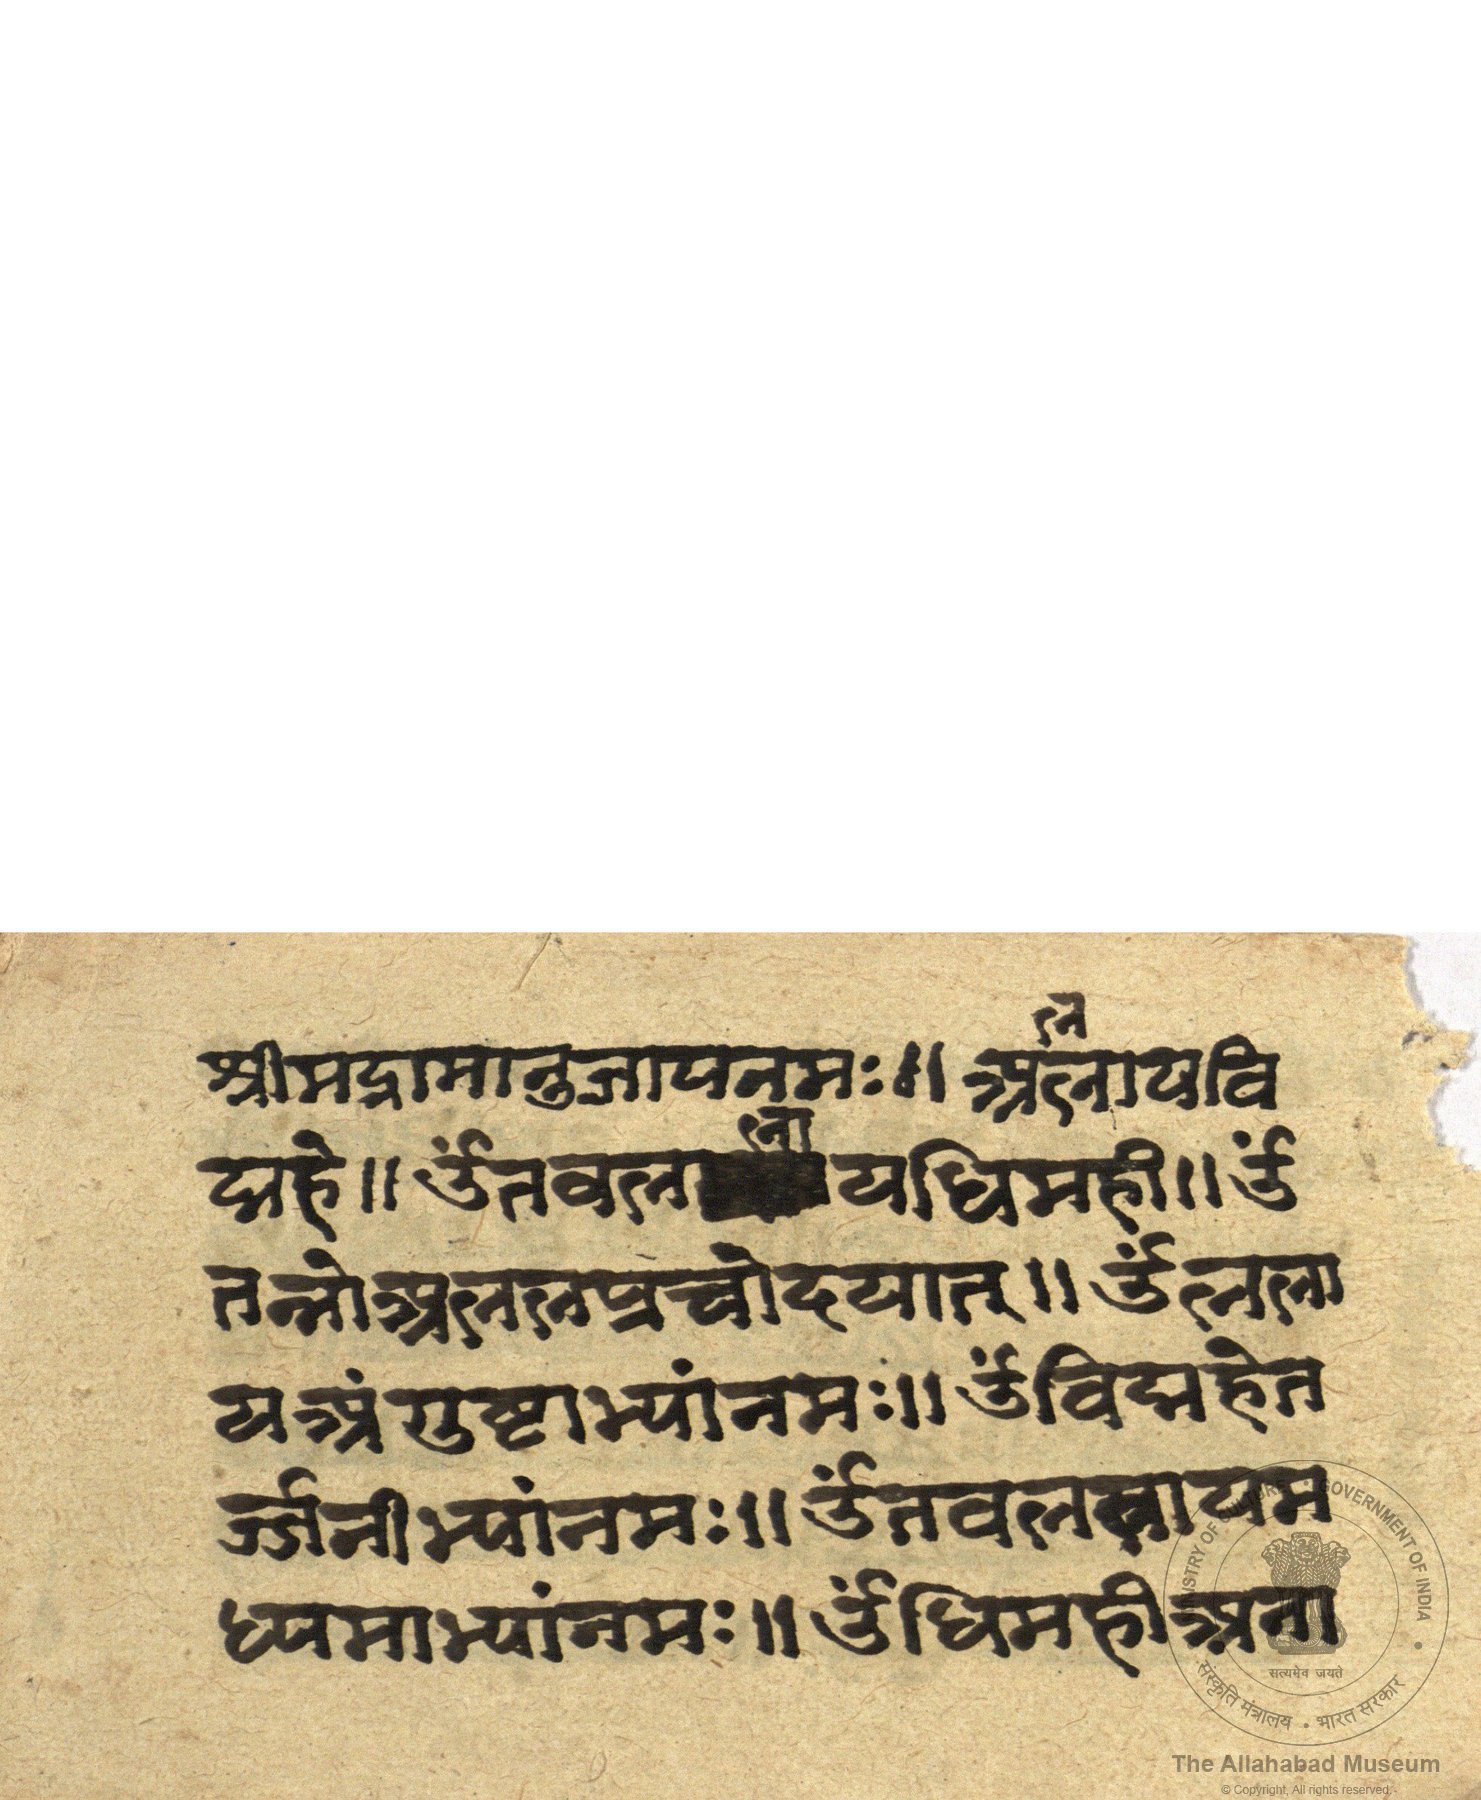 त्न
श्रीमद्रामानुजायनमः॥ अत्नायवि
त्ना
द्महे॥ ॐतवत्न यधिमही॥ ॐ
तन्नोअत्नत्नप्रचोदयात्॥ ॐत्नत्ना
यअंगुष्टाभ्यांनमः॥ ॐविद्महेत
र्ज्जनीभ्यांनमः॥ ॐतवत्न
ध्यमाभ्यांनमः॥ ॐधिमहीअना
MINISTRY OF CULTURE • GOVERNMENT OF INDIA
सत्यमेव जयते
संस्कृति मंत्रालय • भारत सरकार
The Allahabad Museum
© Copyright, All rights reserved.